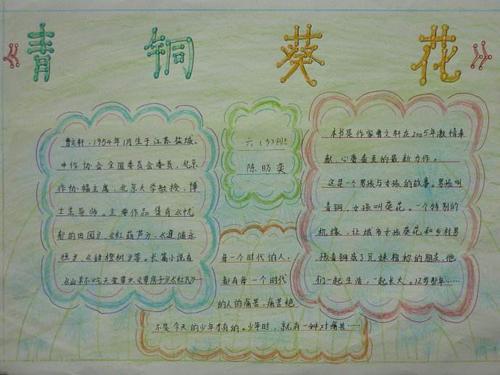 《青铜葵花》
曹文轩,1954年1月生于江苏盐城。
中作协会全国委员会委员,北京
作协副主席,北京大学教授,博
士生导师。主要作品集有《忧
郁的田园》、《红葫芦》、《蔷薇
《甜橙树》等。长篇小说有
《山羊不吃天堂草》、《草房子》、《红瓦》
六(3)班
陈昉奕
本书是作家曹文轩在2005年激情奉
献,心爱备至的最新力作。
这是一个男孩与女孩的故事。男孩叫
青铜,女孩叫葵花。一个特别的
机缘,让城市女孩葵花和乡村男
孩青铜成了兄妹相称的朋友,他
们一起生活,一起长大。12岁那年……
每一个时代的人,
都有每一个时代
的人的痛苦,痛苦绝
不是今天的少年才有的。少年时,就有一种对痛苦……